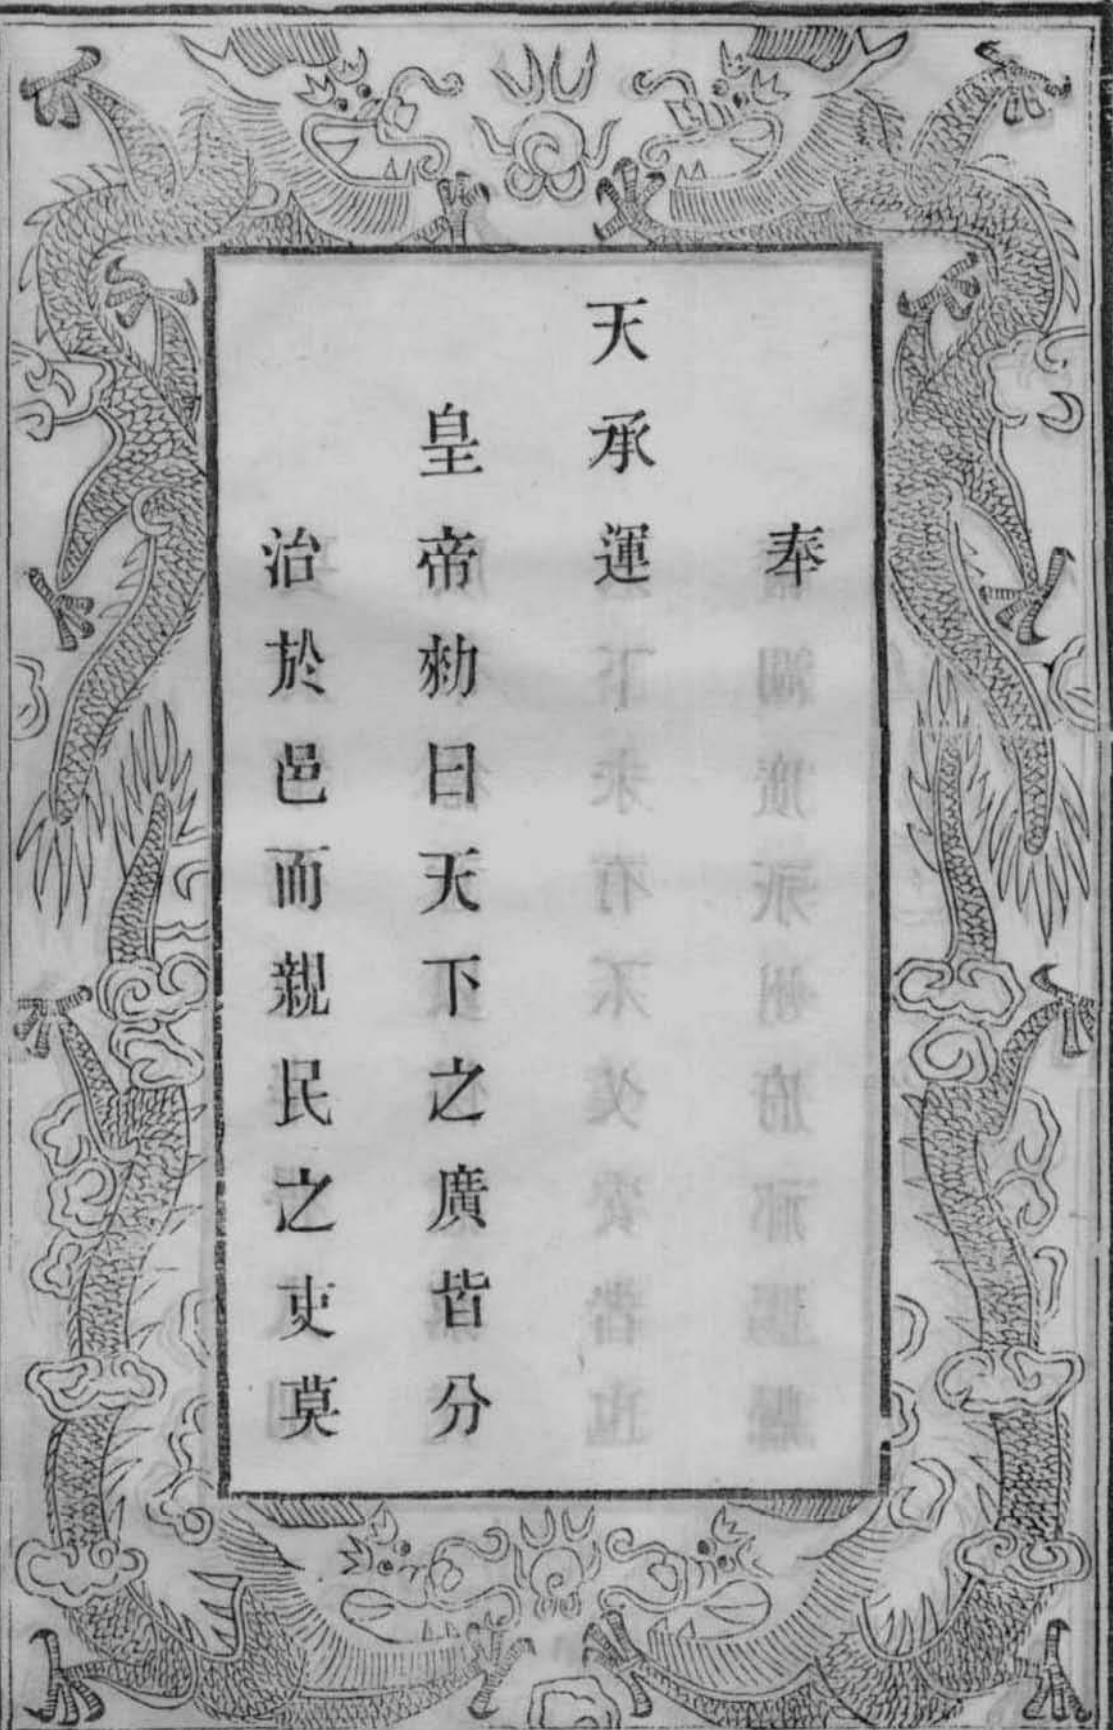 奉
天承運
皇帝勑曰天下之廣皆分
治於邑而親民之吏莫